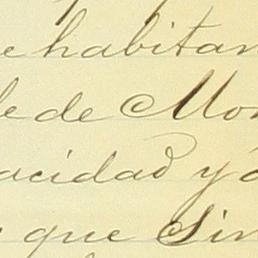 e habitan
le de Mon
acidad y
que Sin